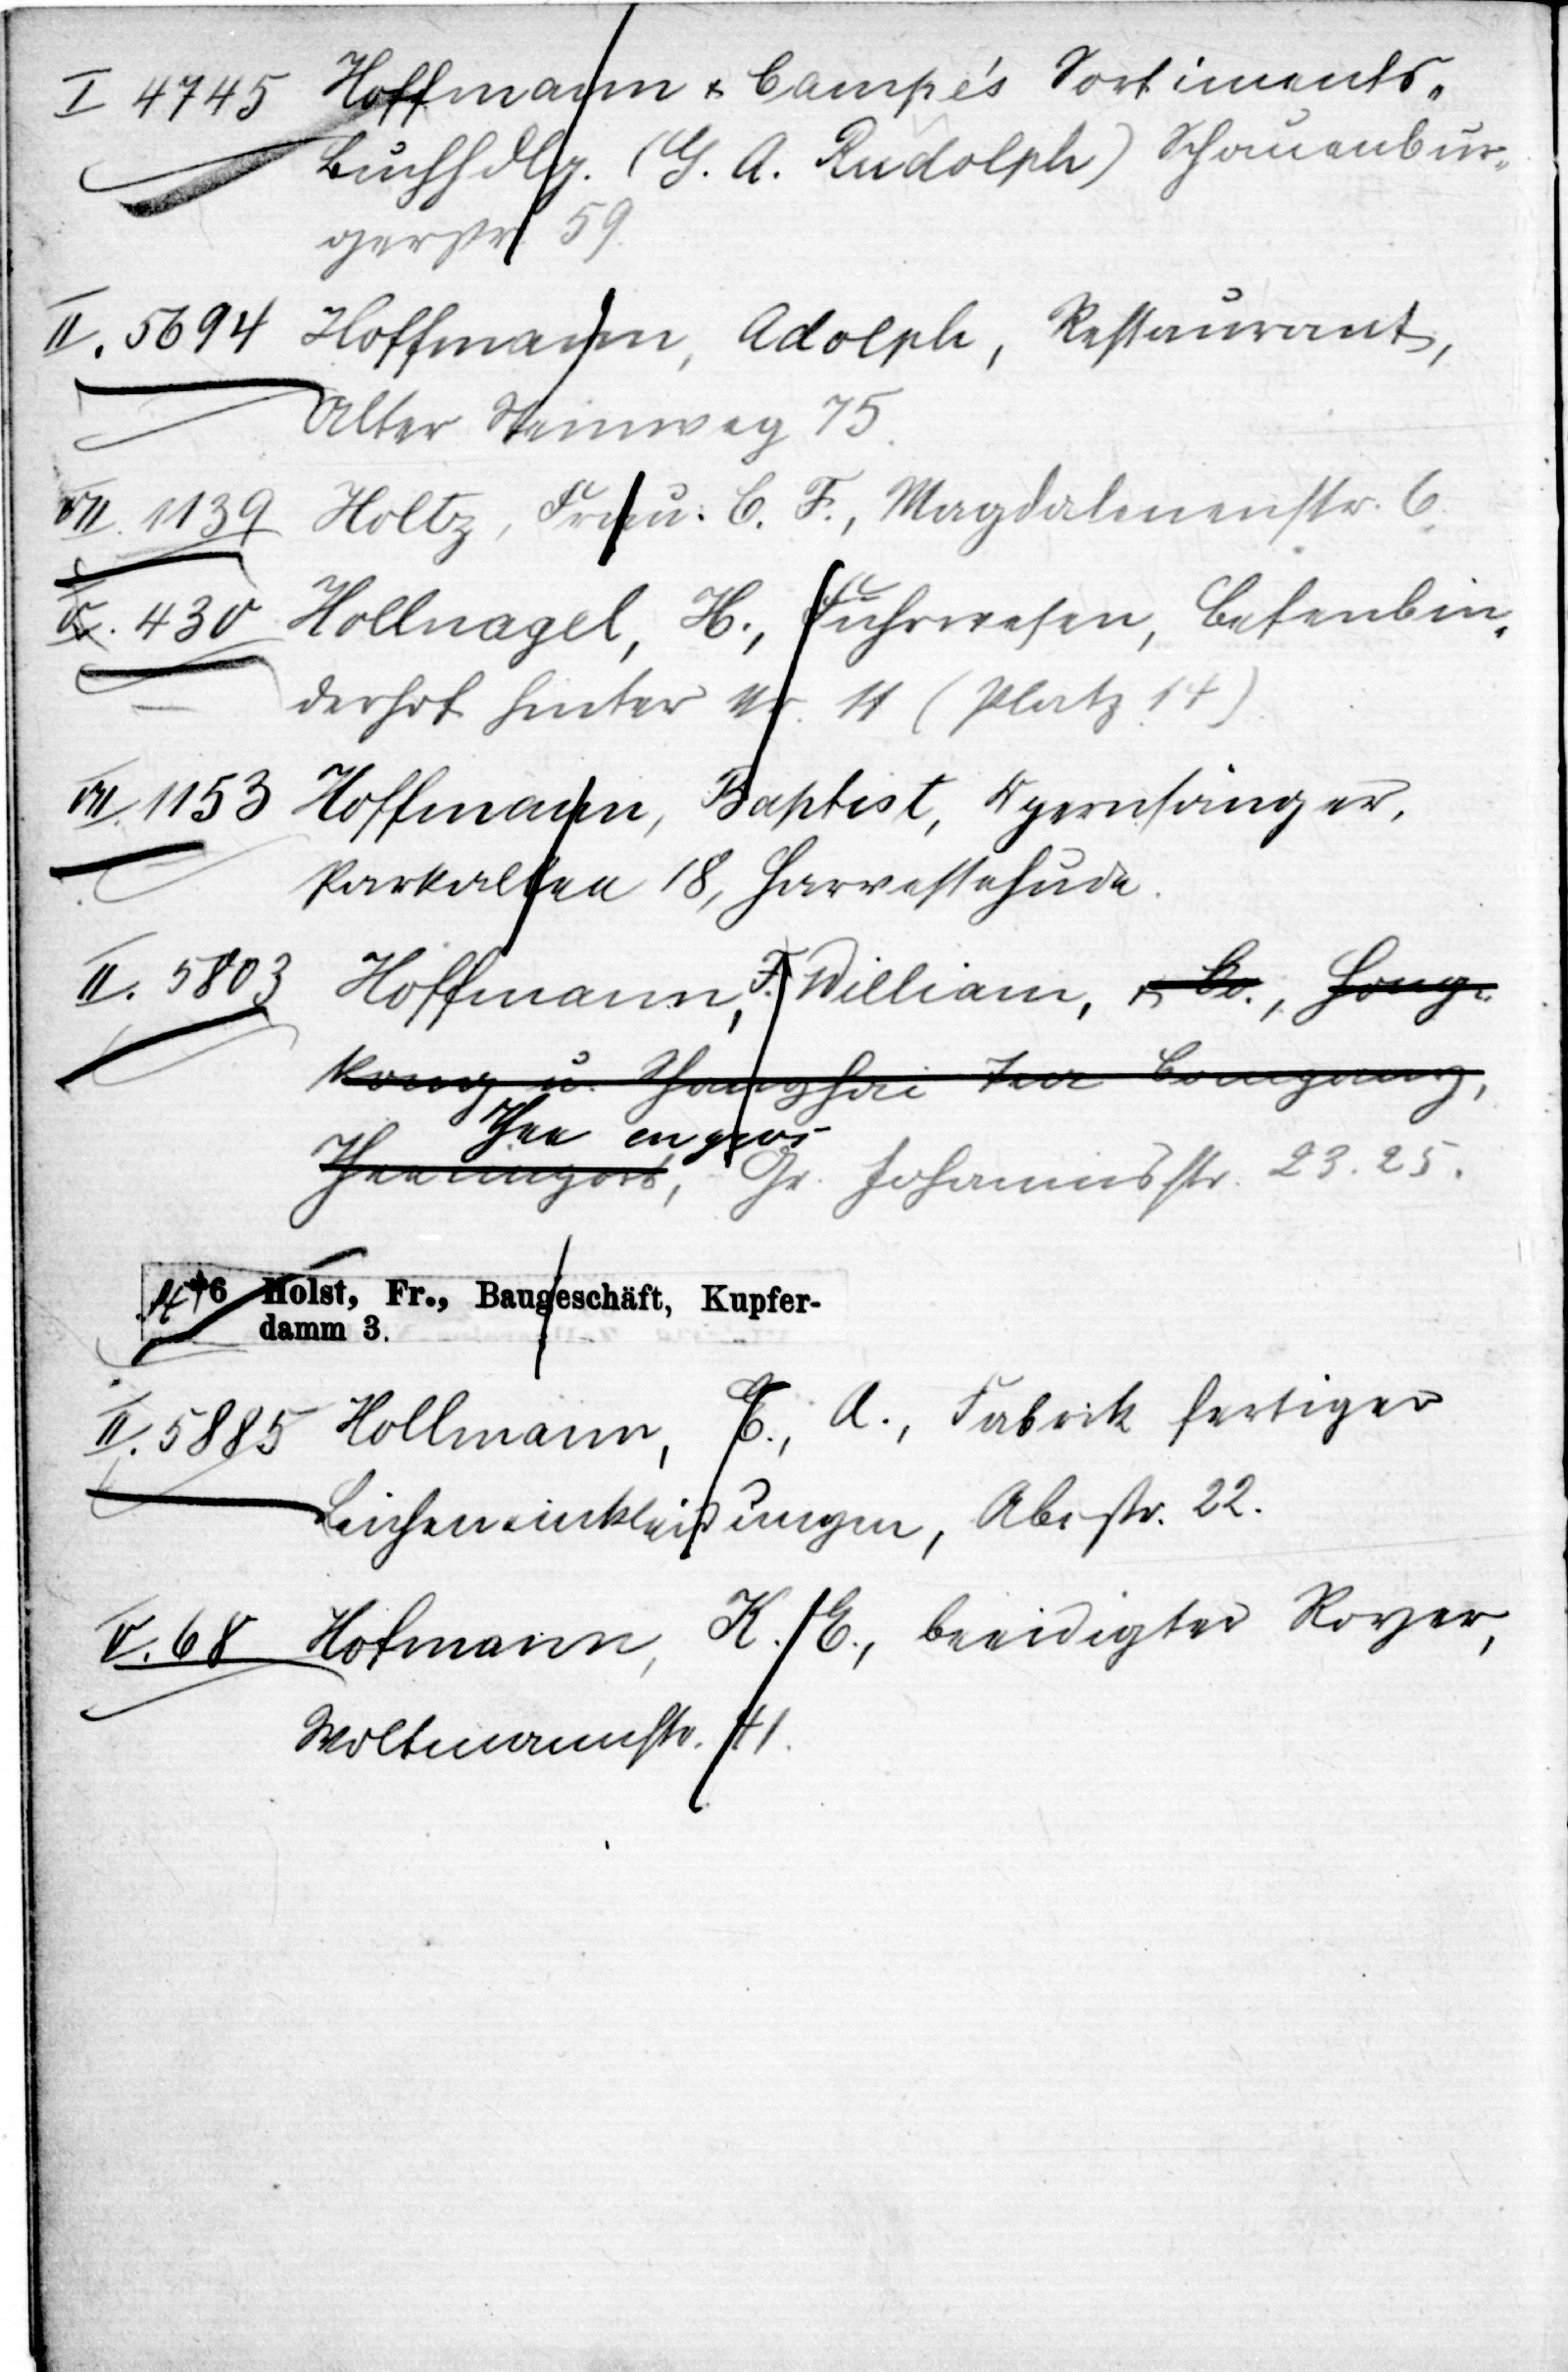 I 4745 Hoffmann & Campe's Sortiments-
Buchhdlg. (G. A. Rudolph) Schauenbur-
gerstr. 59.
II. 5694 Hoffmann, Adolph, Restaurant,
Alter Steinweg 75.
VII. 1139 Holtz, Frau. C. F., Magdalenenstr. 6.
V. 430 Hollnagel, H., Fuhrwesen, Besenbin-
derhof hinter Nr. 11 (Platz 14)
VII. 1153 Hoffmann, Baptist, Opernsänger,
Parkallee 18, Harvestehude.
II. 5803 Hoffmann, F. William, & Co., Hong-
kong u. Shanghai Tea Company,
Thee engros
Theeimport, Gr. Johannisstr. 23.25.
6 Holst, Fr., Baugeschäft, Kupfer-
damm 3.
II. 5885 Hollmann, C., A., Fabrik fertiger
Leicheneinkleidungen, Abcstr. 22.
V. 68 Hofmann, K. E., beeidigter Royer,
Woltmannstr. 41.